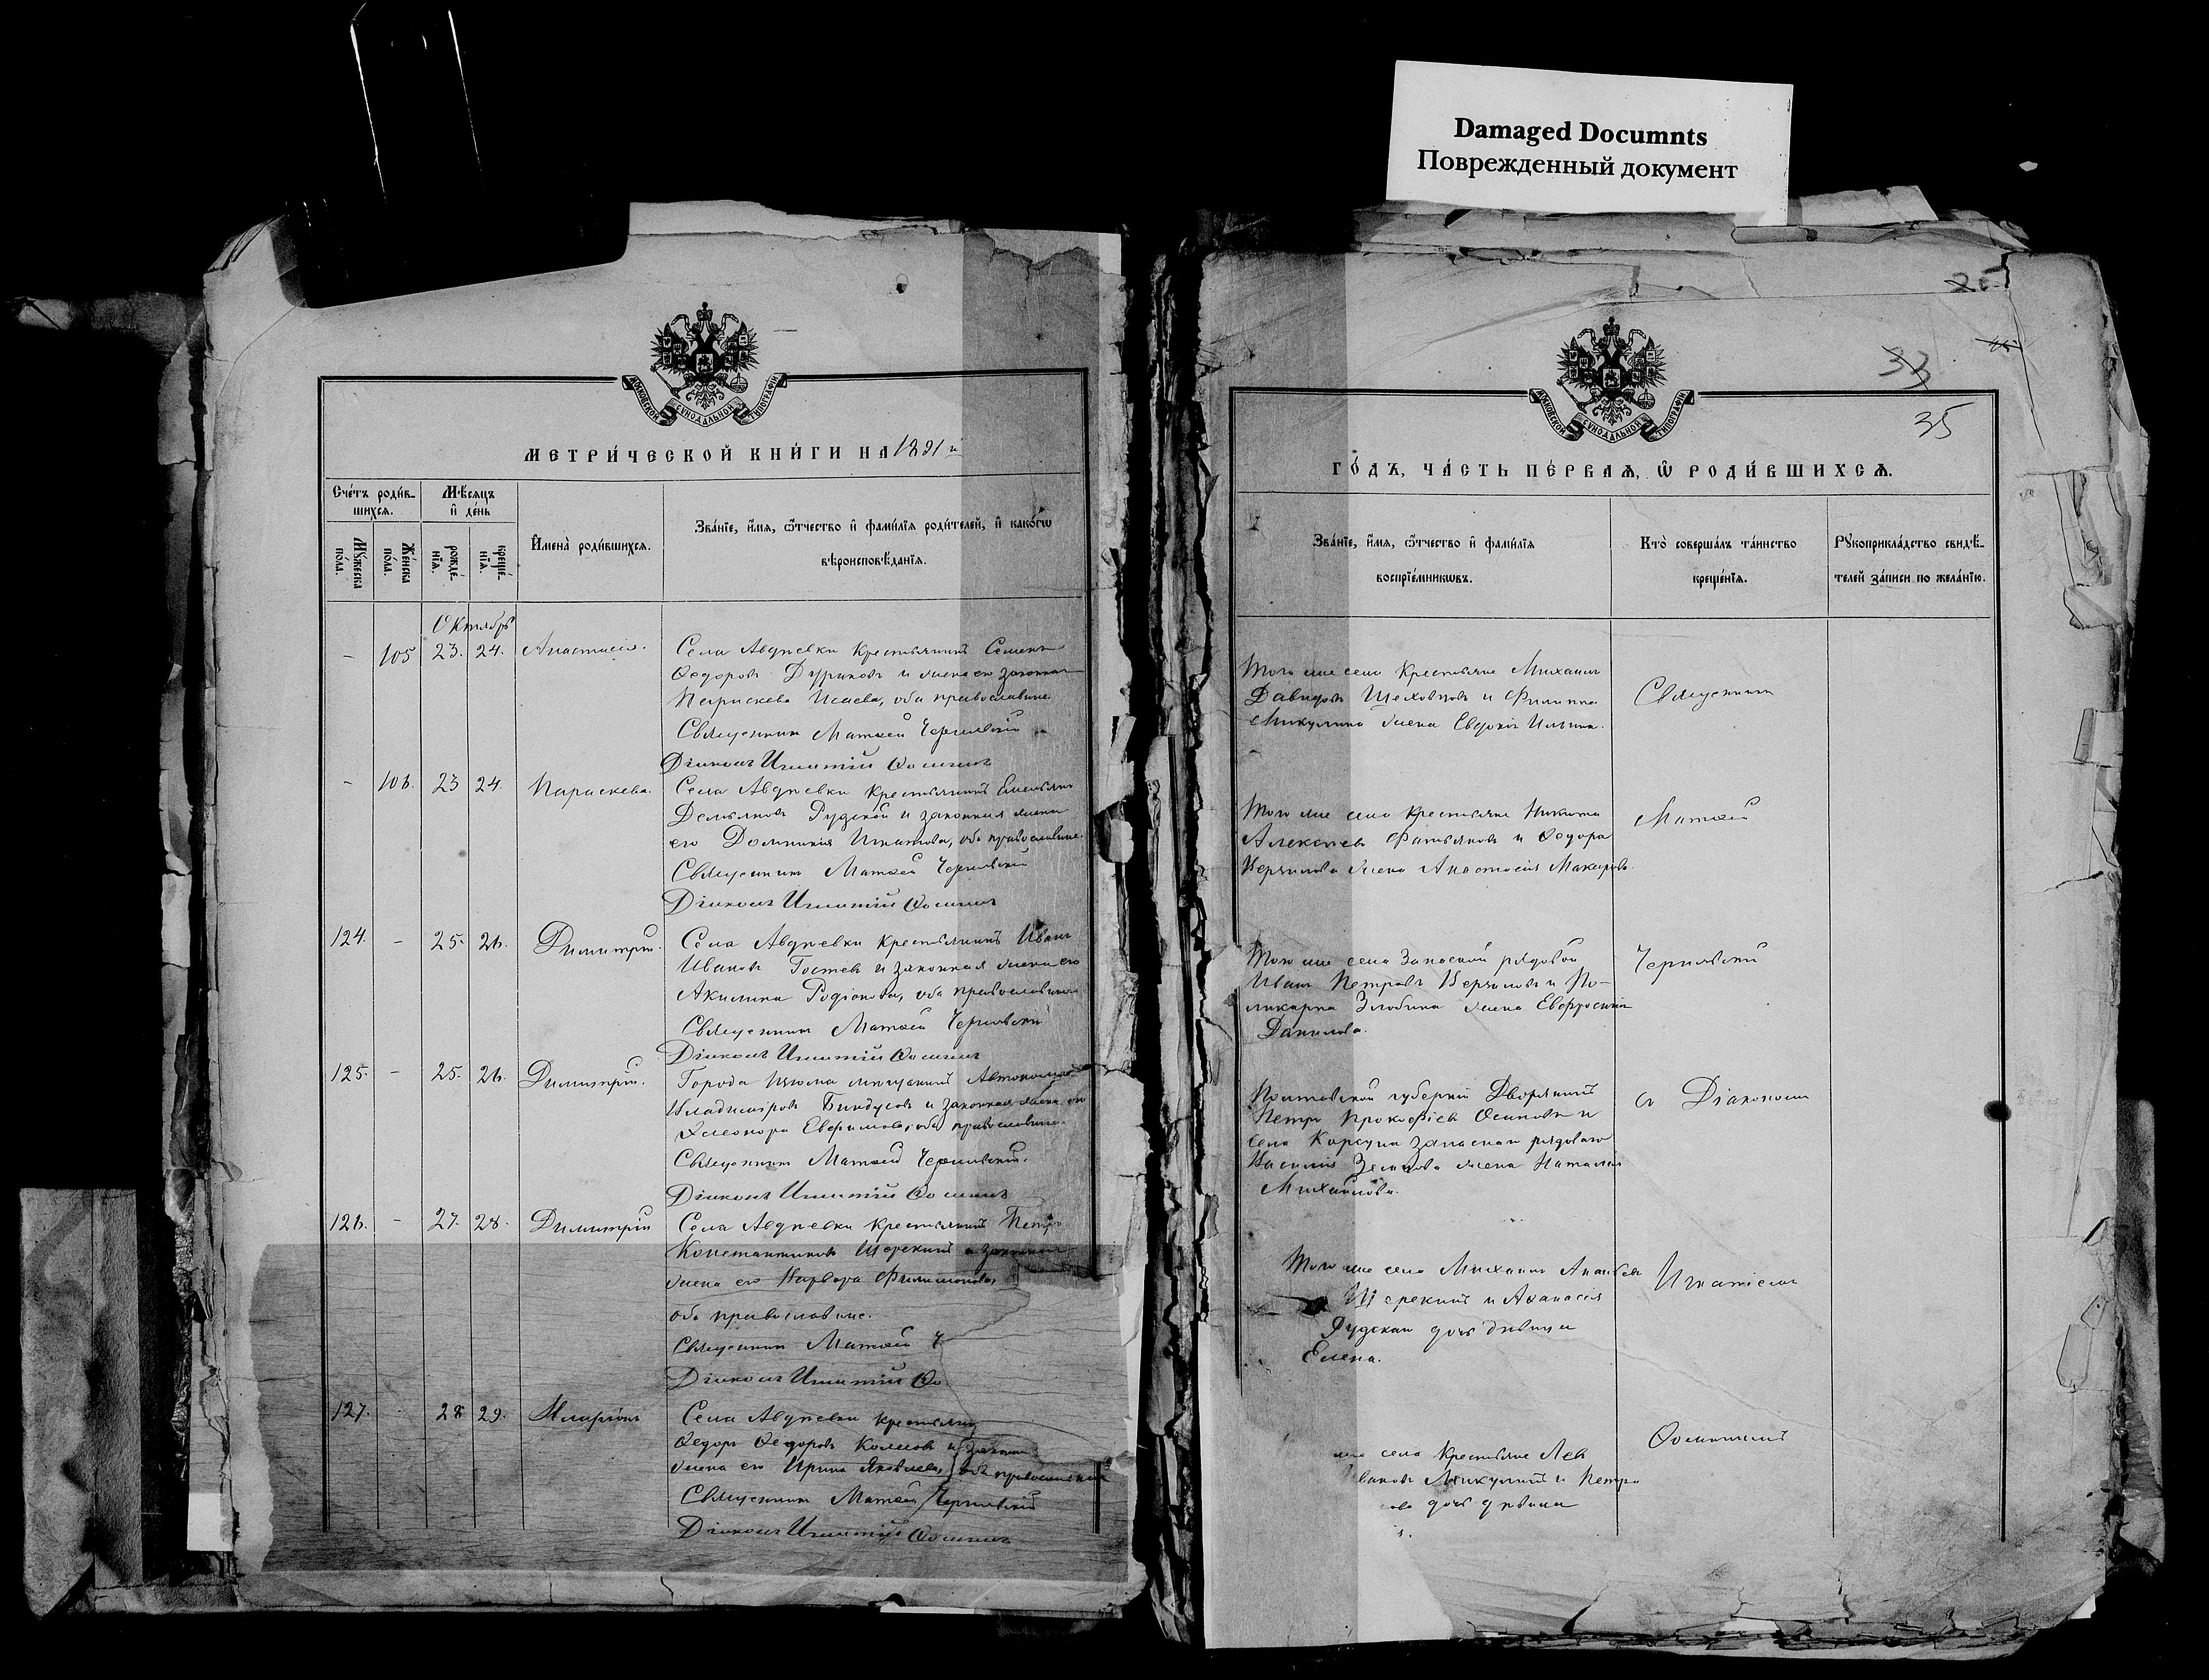 Damaged Documnts
Поврежденный документ
МОСКОВСКОЙ СѴНОДАЛЬНОЙ ТИПОГРАФІИ
МЕТРИ́ЧЕСКОЙ КНИ́ГИ НА 1891 й
Сче́тъ роди́в-
шихся.
Мѣ́сяцъ
и҆ де́нь
Мꙋ́жеска
по́ла.
Же́нска
по́ла.
рожде́-
нїѧ.
креще́-
нїѧ.
И҆мена̀ роди́вшихсѧ.
Зва́нїе, и҆́мѧ, ѻ҆́тчество и҆ фами́лїѧ роди́телей, и҆ како́гѡ
вѣроисповѣ́данїѧ.
Октябрь
- 105 23. 24. Анастасія.
Села Авдѣевки крестьянинъ Семенъ
Ѳедоровъ Дураковъ и жена его законная
Параскева Исаева, оба православные
Священникъ Матѳей Чернявскій
Діаконъ Игнатій Ѳоминъ
- 106. 23 24. Параскева.
Села Авдѣевки крестьянинъ Емельянъ
Демьяновъ Рудской и законная жена
его Домникія Игнатова, оба православные.
Священникъ Матѳей Чернявскій
Діаконъ Игнатій Ѳоминъ
124. - 25. 26. Димитрій.
Села Авдѣевки крестьянинъ Иванъ
Ивановъ Гостевъ и законная жена его
Акилина Родіонова, оба православные
Священникъ Матѳей Чернявскій
Діаконъ Игнатій Ѳоминъ
125. - 25. 26. Димитрій.
Города Изюма мѣщанинъ Автономъ
Владиміровъ Биндусовъ и законная жена его
Евфимова, оба православные.
Священникъ Матѳей Чернявскій.
Діаконъ Игнатій Ѳоминъ
126. - 27. 28. Димитрій
Села Авдѣевки крестьянинъ Петръ
Константиновъ Шерекинъ и законная
жена его Варвара Филимонова,
оба православные.
Священникъ Матѳей Ч
Діаконъ Игнатій Ѳо
127. - 28 29. Иларіонъ
Села Авдѣевки крестьянинъ
Ѳедоръ Ѳедоровъ Колесовъ и законная
жена его Ирина Яковлева, оба православные
Священникъ Матѳей Чернявскій
Діаконъ Игнатій Ѳоминъ
25
33
35
МОСКОВСКОЙ СѴНОДАЛЬНОЙ ТИПОГРАФІИ
ГО́ДЪ, ЧА́СТЬ ПЕ́РВАѦ, Ѽ РОДИ́ВШИХСѦ.
Зва́нїе, и҆́мѧ, ѻ҆́тчество и҆ фами́лїѧ
воспрїе́мникѡвъ.
Кто̀ соверша́лъ та́инство
креще́нїѧ.
Рꙋкоприкла́дство свидѣ́-
телей за́писи по жела́нїю.
Того же села крестьяне Михаилъ
Давидовъ Шеховцовъ и Филиппа
Микулина жена Евдокія Ильина.
Священникъ
Того же села крестьяне Никита
Алексѣевъ Фатьяновъ и Ѳедора
жена Анастасія Макарова.
Матѳей
Того же села Запасной рядовой
Иванъ Петровъ и По-
ликарпа Злобина жена Евфросинія
Данилова.
Чернявскій
Полтавской губерніи Дворянинъ
Петръ Прокофіевъ Осиповъ и
села Корсуни запаснаго рядоваго
Василія жена Наталія
Михайлова.
съ Діакономъ
Того же села Михаилъ
Шерекинъ и Аѳанасія
Рудскаго дочь дѣвица
Елена.
Игнатіемъ
же села крестьяне Левъ
вановъ Микулинъ и Петра
ова дочь дѣвица
Ѳоминымъ